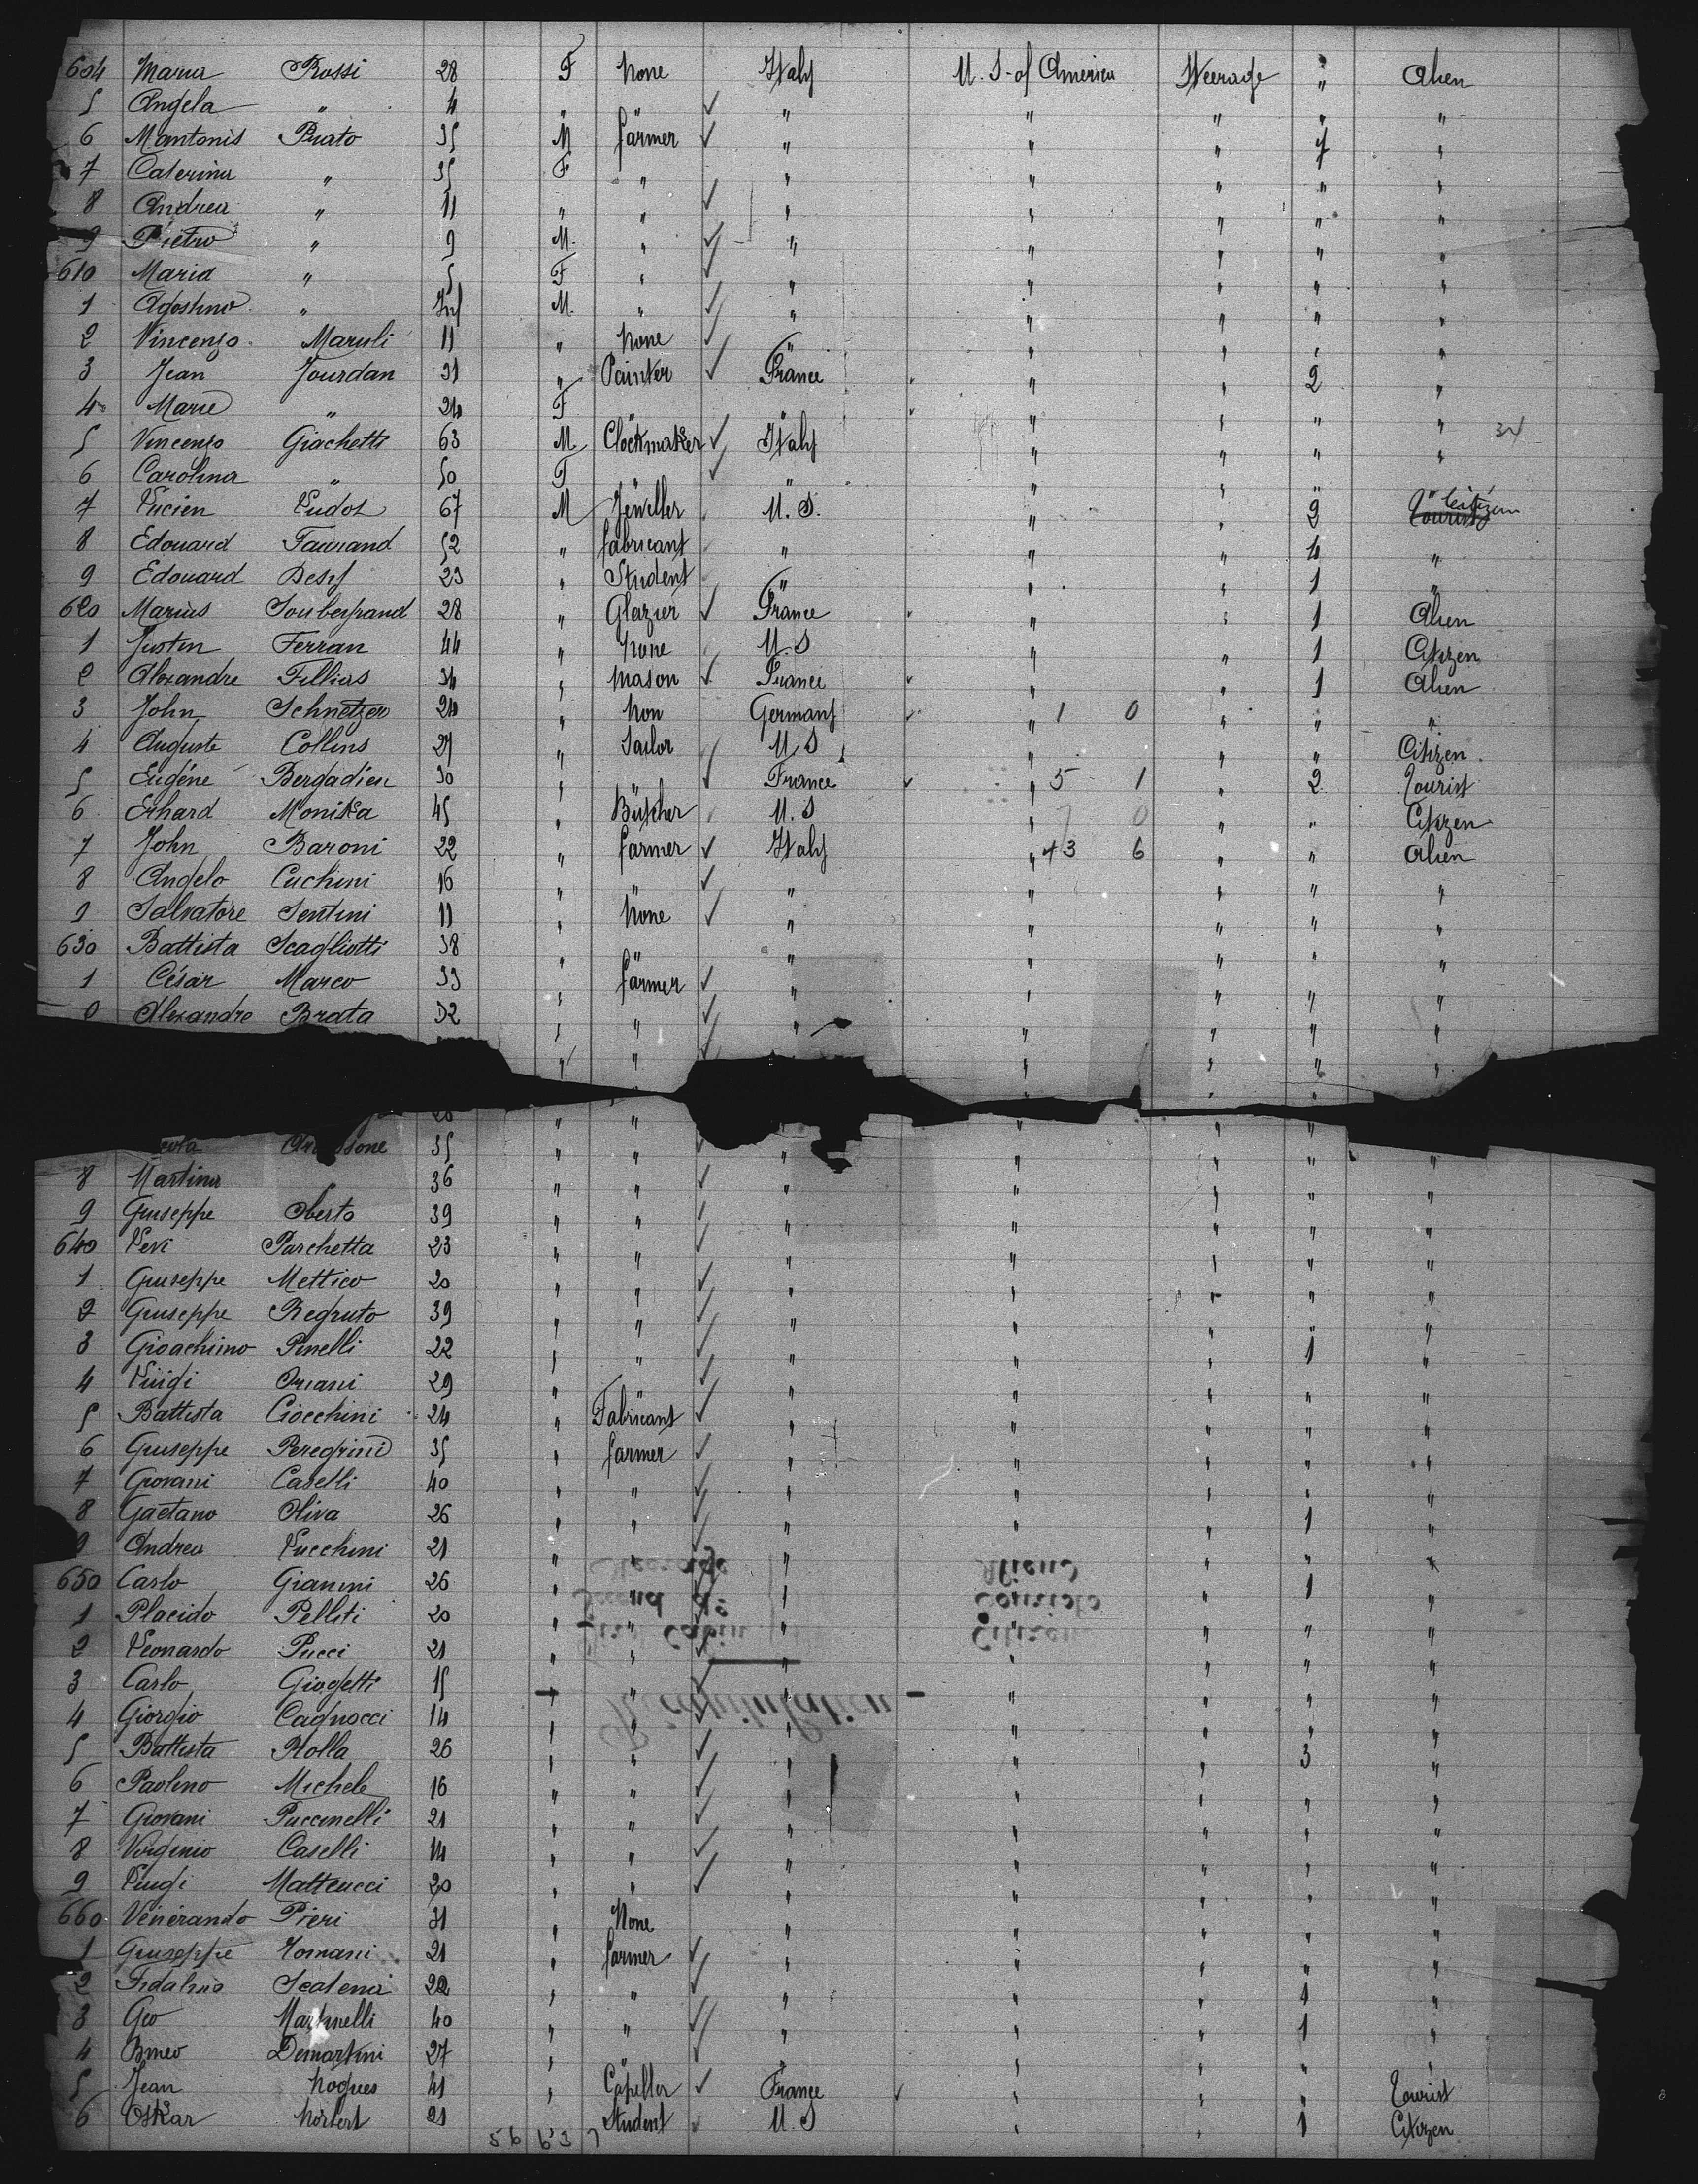 604 Maria Rossi 28 F None Italy U. S. of America Steerage " Alien
5 Angela " 4 " " " " " " "
6 Mantonis Prato 35 M farmer " " " 7 "
7 Caterina " 35 F " " " " " "
8 Andrea " 11 " " " " " " "
9 Pietro " 9 M. " " " " " "
610 Maria " 5 F " " " " " "
1 Agostino " Inf M. " " " " " "
2 Vincenzo Maruli 11 " None " " " " "
3 Jean Jourdan 31 " Painter France " " 2 "
4 Marie " 24 F " " " " " "
5 Vincenzo Giachetti 63 M. Clockmaker Italy " " " " 34
6 Carolina " 50 F " " " " " "
7 Lucien Ludot 67 M Jeweller U. S. " " 2 Tourist Citizen
8 Edouard Faurand 52 " fabricant " " " 4 "
9 Edouard Desy 23 " Student " " " 1 "
620 Marius Soubeyrand 28 " Glazier France " " 1 Alien
1 Justin Ferran 44 " None U. S " " 1 Citizen
2 Alexandre Fillias 34 " Mason France " " 1 Alien
3 John Schnetzer 24 " Non Germany " 1 0 " " "
4 Auguste Collins 27 " Sailor U. S " " " Citizen
5 Eugéne Bergadieu 30 " " France " 5 1 " 2 Tourist
6 Erhard Monika 45 " Butcher U. S " 7 0 " " Citizen
7 John Baroni 22 " farmer Italy " 43 6 " " Alien
8 Angelo Cuchini 16 " " " " " " "
9 Salvatore Sentini 11 " None " " " " "
630 Battista Scagliotti 38 " " " " " " "
1 César Marco 33 " farmer " " " " "
Alexandre Brata 32 " " " " " " "
" " " " " "
" " " "
35 " " " " " " "
8 Martina " 36 " " " " " " "
9 Giuseppe Oberto 39 " " " " " " "
640 Levi Parchetta 23 " " " " " " "
1 Giuseppe Mettico 20 " " " " " " "
2 Giuseppe Regruto 39 " " " " " " "
3 Gioachimo Pinelli 22 " " " " " 1 "
4 Luigi Oriani 29 " " " " " " "
5 Battista Ciocchini 24 " Fabricant " " " " "
6 Giuseppe Peregrini 35 " farmer " " " " "
7 Giovani Caselli 40 " " " " " " "
8 Gaetano Oliva 26 " " " " " 1 "
9 Andrea Lucchini 21 " " " " " " "
Steerage Aliens
650 Carlo Gianini 26 " " " " " 1 "
Second do Tourists
1 Placido Pelliti 20 " " " " " " "
First Cabin Citizens
2 Leonardo Pucci 21 " " " " " " "
3 Carlo Giogetti 15 " " " " " " "
- Recapitulation -
4 Giorgio Cagnacci 14 " " " " " " "
5 Battista Rolla 26 " " " " " 3 "
6 Paolino Michele 16 " " " " " " "
7 Giovani Puccinelli 21 " " " " " " "
8 Virginio Caselli 14 " " " " " " "
9 Luigi Matteucci 20 " " " " " " "
660 Vénérando Pieri 31 " None " " " " "
1 Giuseppe Tomani 21 " farmer " " " " "
2 Fidalino Scatena 22 " " " " " 1 "
3 Geo Martinelli 40 " " " " " 1 "
4 Demartini 27 " " " " " " "
5 Jean Nogues 41 " France " " " Tourist
6 Oskar Norbert 21 " Student U. S " " 1 Citizen
56 63 7